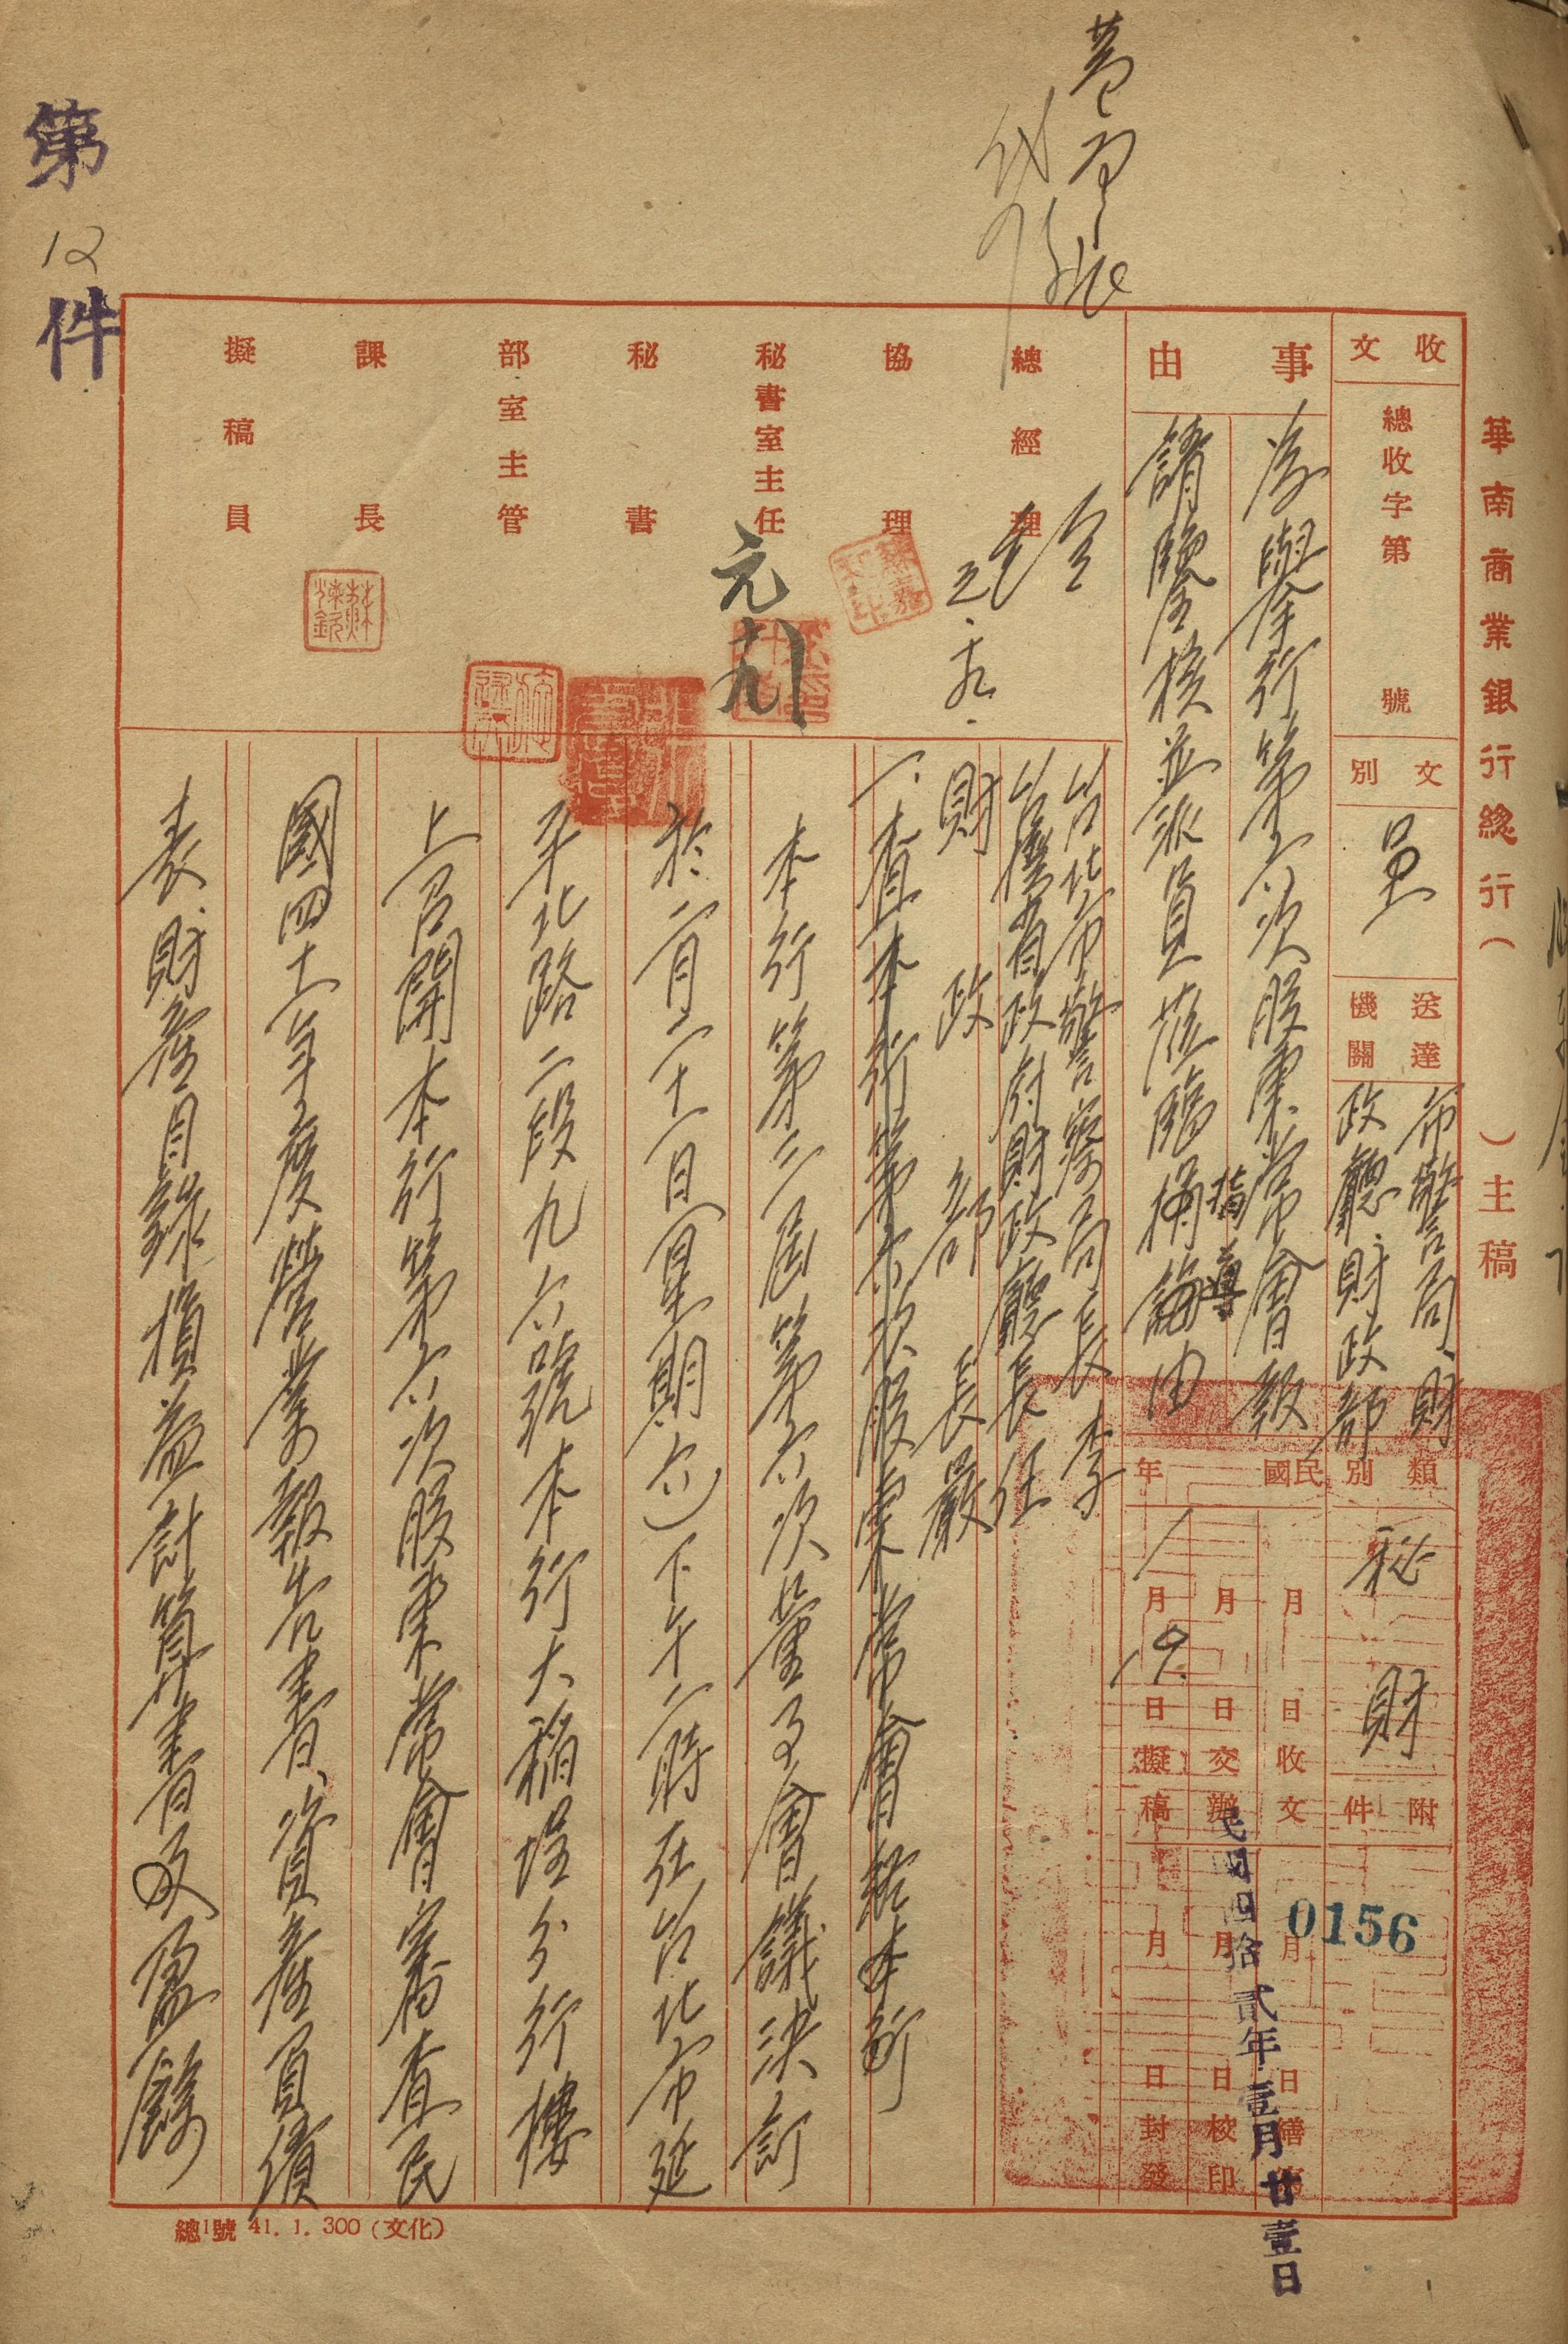 華南商業銀行總行（　　）主稿
收文
總收字第　　號
文別
呈
送達機關
市警局、財
政廳、財政部
類別
秘
財
附件
事由
為舉行第六次股東常會報
請鑒核並派員蒞臨指導由
民國　年
月　日收文
月　日交辦
1月19日擬稿
月　日繕寫
月　日校印
月　日封發
0156
民國四拾貳年壹月廿壹日
總經理
協理
秘書室主任
秘書
部室主管
課長
擬稿員
元
台北市警察局長李
台灣省政府財政廳長任
財政部長嚴
一、查本行第六次股東常會經本行
本行第三屆第六次董事會議決訂
於二月二十一日（星期六）下午二時在台北市延
平北路二段九六號本行大稻埕分行樓
上召開本行第六次股東常會審查民
國四十一年度營業報告書、資產負債
表、財產目錄損益計算書及盈餘
第12件
總1號 41. 1. 300（文化）